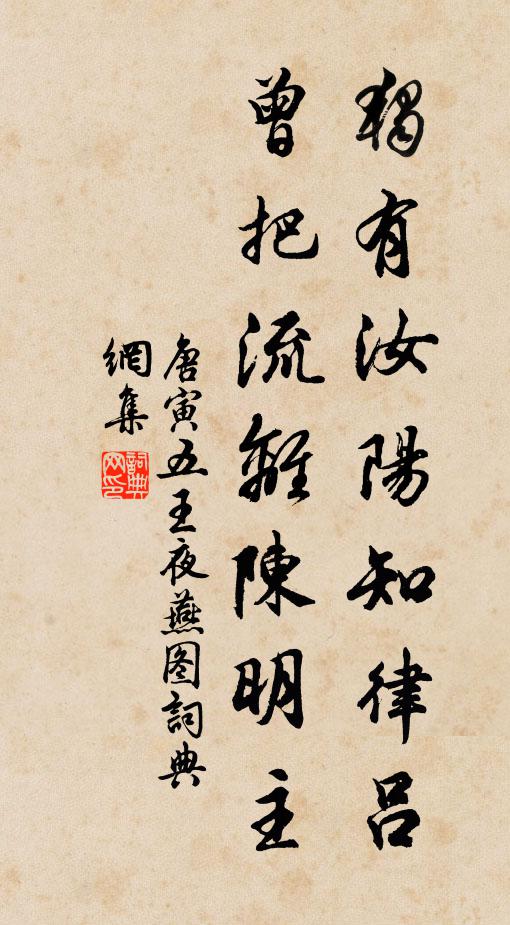 獨有汝陽知律呂
曾把流離陳明主
唐寅五王夜燕图詞典
網集
詞典
网印